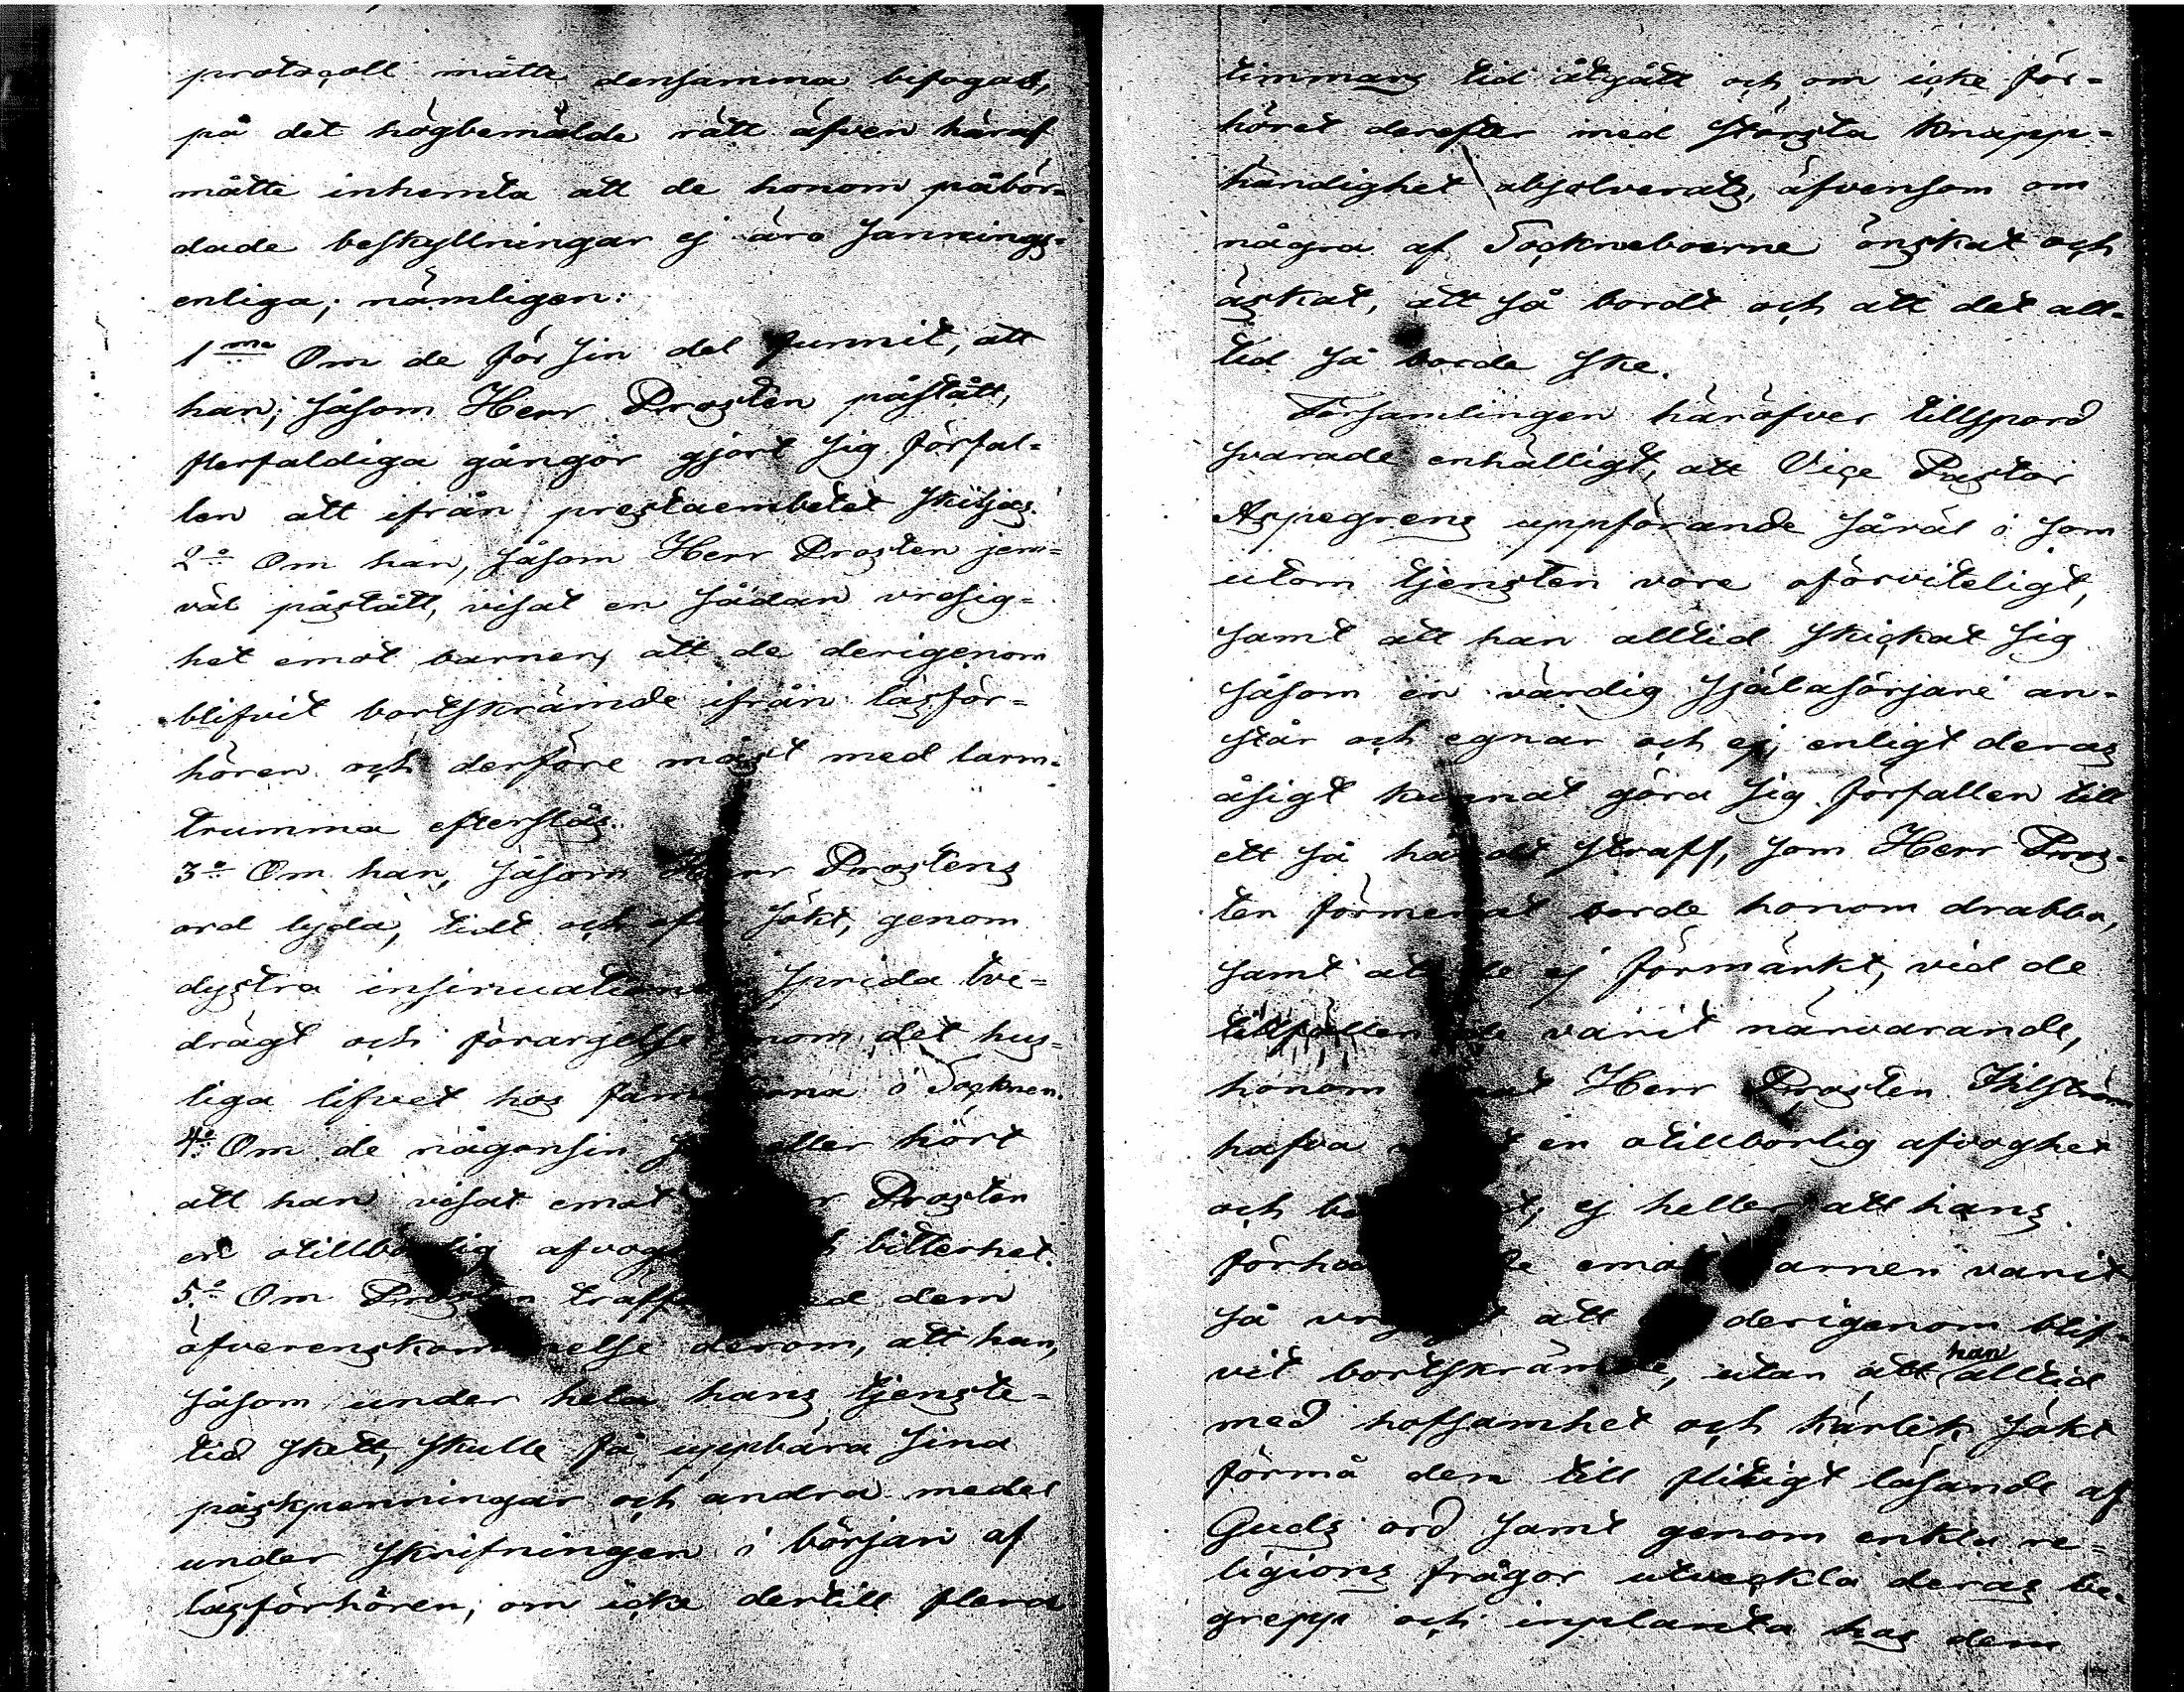 protocoll måtte densamma bifogas,
på det högbemälde rätt äfven häraf
måtte inhemta att de honom påbör-
dade beskyllningar ej äro sannings-
enliga, nämligen:
1mo Om de för sin del funnit, att
han, såsom Herr Prosten påstått,
flerfaldiga gångor gjort sig förfal-
len att ifrån prestaembetet skiljas.
2o Om han, såsom Herr Prosten jem-
väl påstått, visat en sådan vresig-
het emot barnen, att de derigenom
blifvit bortskrämde ifrån läsför-
hören och derföre måst med larm-
trumma efterslås.
3o Om han, såsom Herr Prostens
ord lyda, tidt och ofta sökt, genom
dystra insinuationer sprida tve-
drägt och förargelse inom det hus-
liga lifvet hos familjerna i Socknen.
4o Om de någonsin eller hört
att han visat emot Prosten
en otillbörlig bitterhet.
5o Om Prosten träffat med dem
öfverenskommelse derom, att han,
såsom under hela hans tjenste-
tid skett, skulle få uppbära sina
påskpenningar och andra medel
under skrifningen i början af
läsförhören, om icke dertill flera
timmars tid åtgått och om icke för-
höret derefter med största knapp-
händighet absolverats, äfvensom om
några af Sockneboerne önskat och
äskat, att så bordt och att det all-
tid så borde ske.
Församlingen häröfver tillspord
svarade enhälligt, att Vice Pastor
Aspegrens uppförande såväl i som
utom tjensten vore oförviteligt,
samt att han alltid skickat sig
såsom en värdig själasörjare an-
står och egnar och ej enligt deras
åsigt kunnat göra sig förfallen till
ett så hårdt straff, som Herr Pros-
ten förmenat borde honom drabba,
samt att de ej förmärkt, vid de
tillfällen de varit närvarande,
honom emot Herr Prosten
hafva visat en otillborlig afvoghet
och ej heller att hans
förhållande emot barnen varit
så att derigenom blif-
vit bortskrämde, utan att han alltid
med hofsamhet och kärlek sökt
förmå dem till flitigt läsande af
Guds ord samt genom enkla re-
ligions frågor utveckla deras be-
grepp och inplanta hos dem